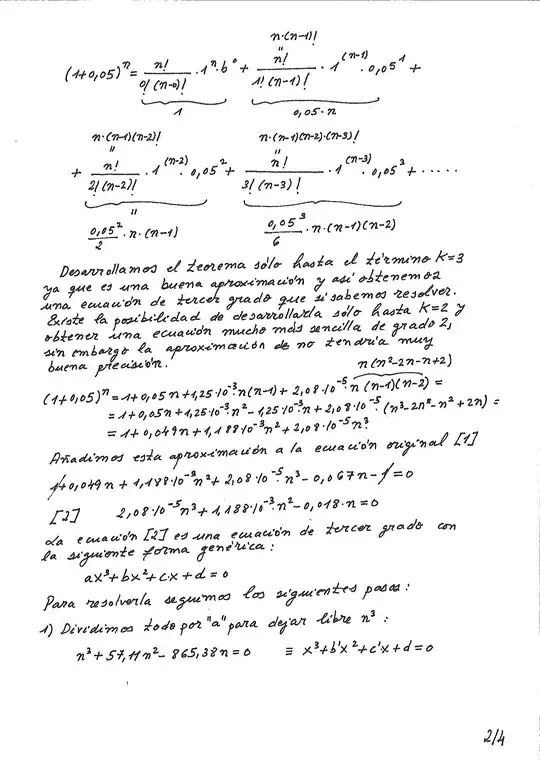 n·(n-1)!
"
(1+0,05)ⁿ = n!/0!(n-0)! · 1ⁿ·b⁰ + n!/1!(n-1)! · 1⁽ⁿ⁻¹⁾·0,05¹ +
1
0,05·n
n·(n-1)(n-2)!
n·(n-1)(n-2)·(n-3)!
"
"
+ n!/2!(n-2)! · 1⁽ⁿ⁻²⁾·0,05² + n!/3!(n-3)! · 1⁽ⁿ⁻³⁾·0,05³ + .....
"
0,05²/2 · n·(n-1)
0,05³/6 · n·(n-1)(n-2)
Desarrollamos el teorema sólo hasta el término K=3
ya que es una buena aproximación y así obtenemos
una ecuación de tercer grado que sí sabemos resolver.
Existe la posibilidad de desarrollarla sólo hasta K=2 y
obtener una ecuación mucho más sencilla de grado 2,
sin embargo la aproximación de no tendría muy
buena precisión.
n(n²-2n-n+2)
(1+0,05)ⁿ = 1+0,05n+1,25·10⁻³n(n-1)+2,08·10⁻⁵·n(n-1)(n-2) =
= 1+0,05n+1,25·10⁻³·n²-1,25·10⁻³·n+2,08·10⁻⁵·(n³-2n²-n²+2n) =
= 1+0,049n+1,188·10⁻³n²+2,08·10⁻⁵n³
Añadimos esta aproximación a la ecuación original [1]
1+0,049n+1,188·10⁻³n²+2,08·10⁻⁵·n³-0,067n-1=0
[2] 2,08·10⁻⁵n³+1,188·10⁻³·n²-0,018·n=0
La ecuación [2] es una ecuación de tercer grado con
la siguiente forma genérica:
ax³+bx²+cx+d=0
Para resolverla seguimos los siguientes pasos:
1) Dividimos todo por "a" para dejar libre n³:
n³+57,11n²-865,38n=0 ≡ x³+b'x²+c'x+d=0
2/4